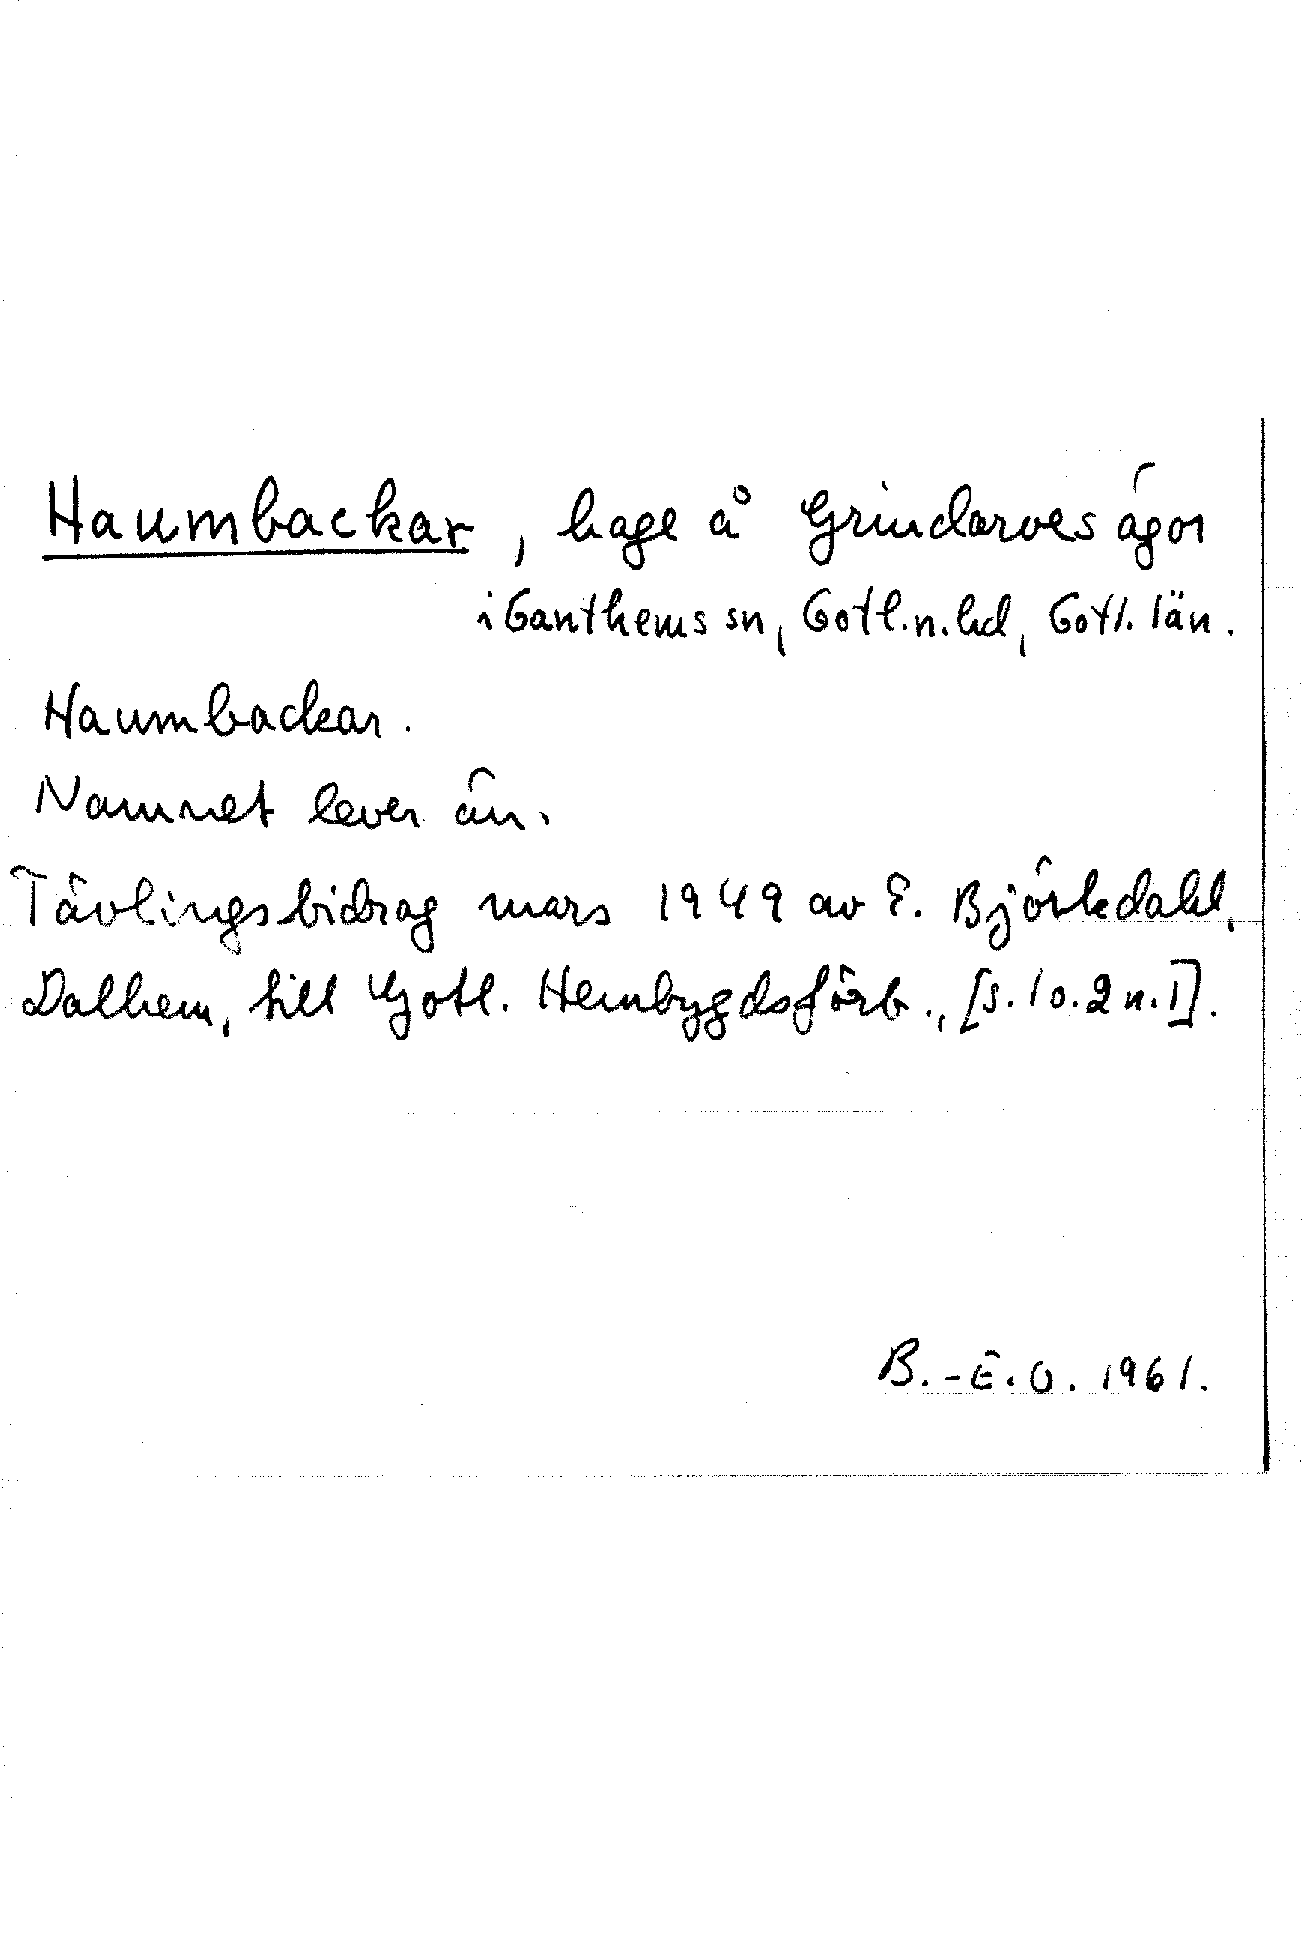 Haumbackar, hage å Grindarves ägor
i Ganthems sn, Gotl.n.hd, Gotl. län.
Haumbackar.
Namnet lever än.
Tävlingsbidrag mars 1949 av E. Björkdahl,
Dalhem, till Gotl. Hembygdsförb., [s. 1 o. 2 n. I].
B.-E.O. 1961.